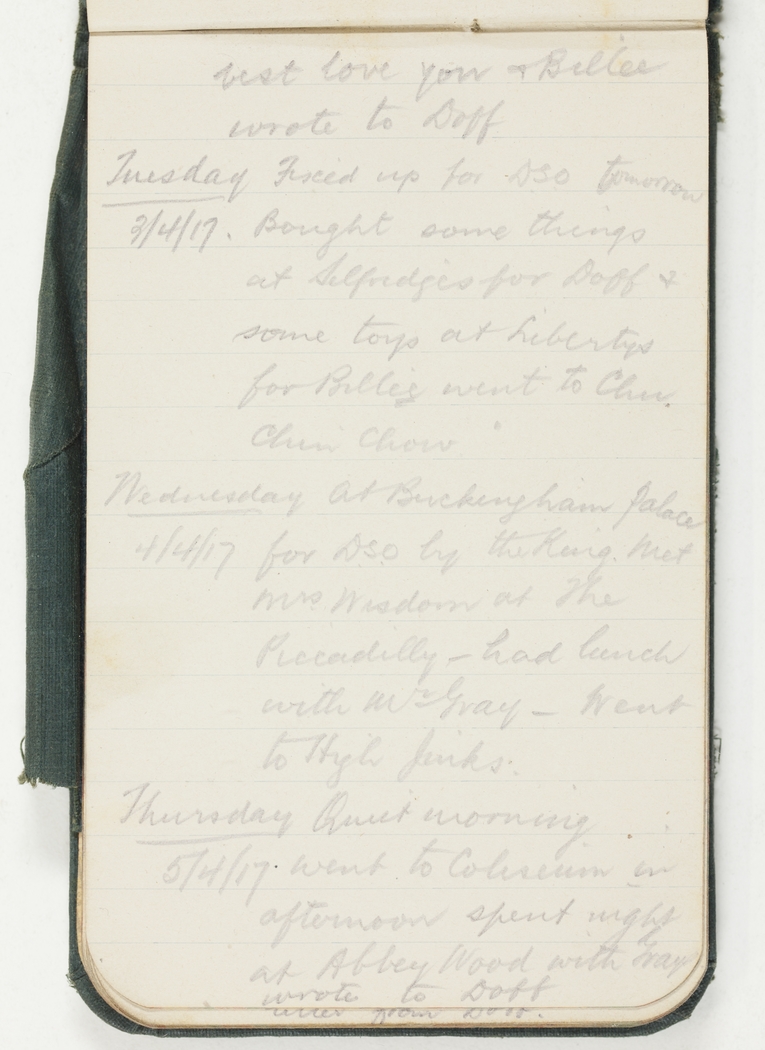 best love you & Billee
wrote to Doff
Tuesday Fixed up for DSO tomorrow
3/4/17. Bought some things
at Selfridges for Doff &
some toys at Libertys
for Billee went to Chu
Chin Chow"
Wednesday At Buckingham Palace
4/4/17 for DSO by the King. Met
Mrs Wisdom at The
Piccadilly – had lunch
with Mr Gray – Went
to High Jinks.
Thursday Quiet morning
5/4/17. went to Coliseum in
afternoon spent night
at Abbey Wood with Gray
wrote to Doff
letter from Doff.